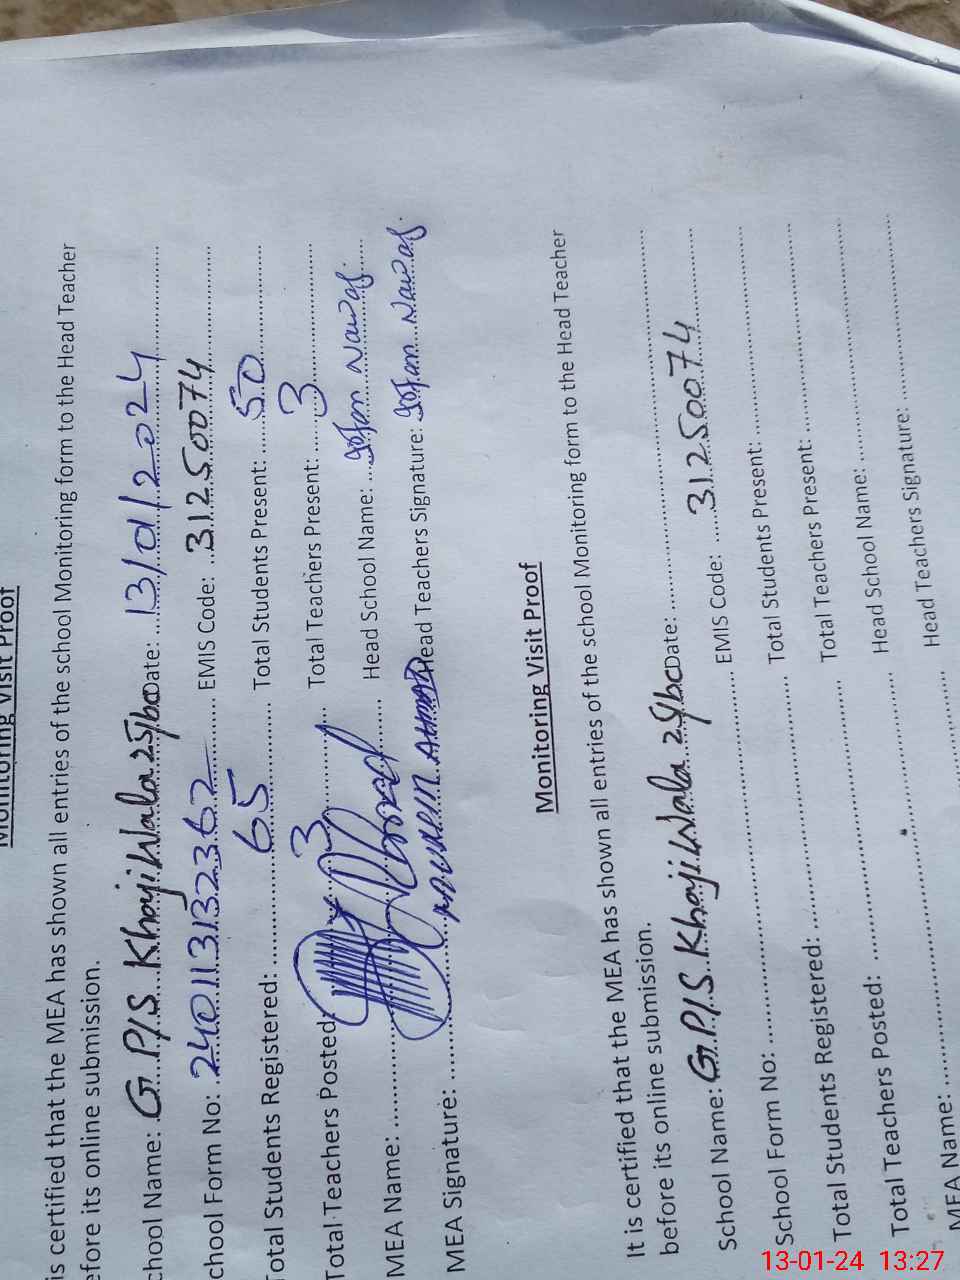 Monitoring Visit Proof
is certified that the MEA has shown all entries of the school Monitoring form to the Head Teacher
efore its online submission.
chool Name: G.P/S Khaji Wala 25/bc Date: 13/01/2024
chool Form No: 24011313 2362 EMIS Code: 31250074
Total Students Registered: 65 Total Students Present: 50
Total Teachers Posted: 3 Total Teachers Present: 3
MEA Name: Head School Name: Nawaz
MEA Signature: Head Teachers Signature: Nawaz
Monitoring Visit Proof
It is certified that the MEA has shown all entries of the school Monitoring form to the Head Teacher
before its online submission.
School Name: G.P/S Khaji Wala 25/bc Date:
School Form No: EMIS Code: 31250074
Total Students Registered: Total Students Present:
Total Teachers Posted: Total Teachers Present:
MEA Name: Head School Name:
Head Teachers Signature:
13-01-24 13:27